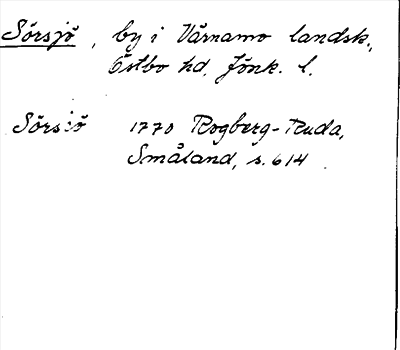 Sörsjö, by i Värnamo landsk.,
Östbo hd, Jönk. l.
Sörsiö 1770 Rogberg-Ruda,
Småland, s. 614